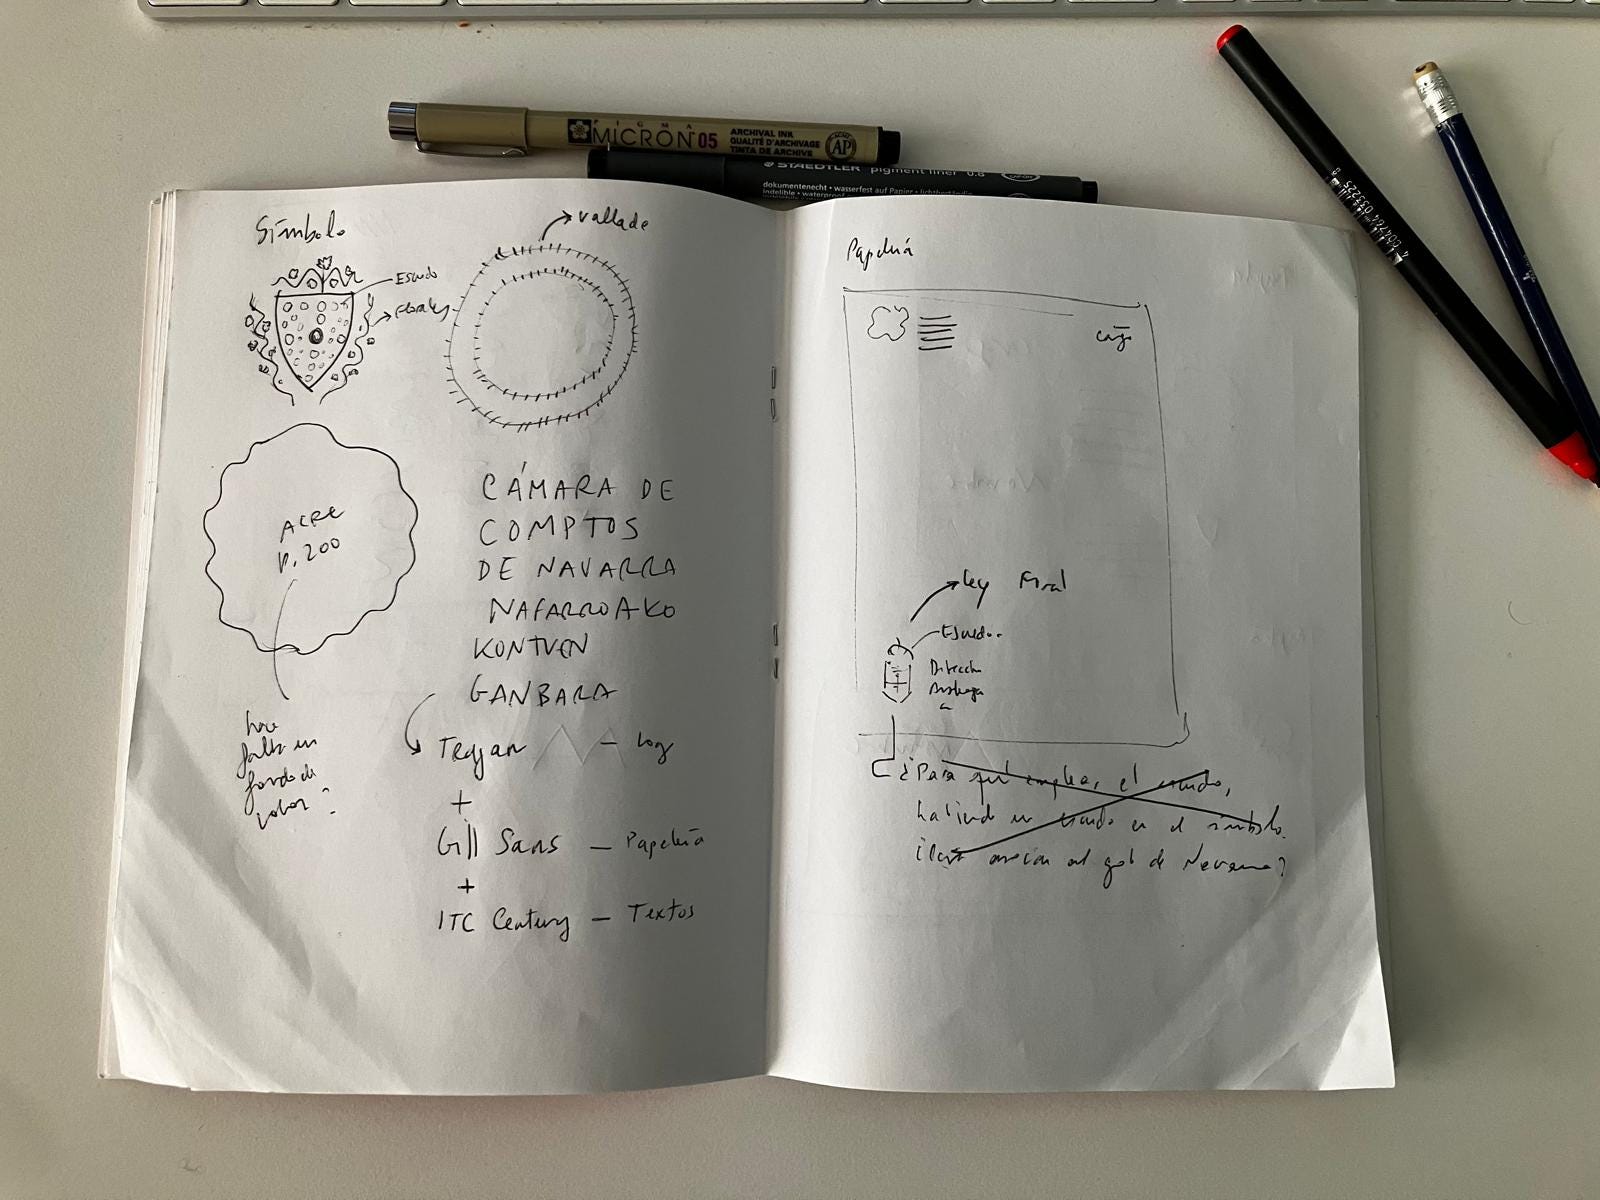 PIGMA
MICRON 05
ARCHIVAL INK
QUALITÉ D'ARCHIVAGE
TINTA DE ARCHIVE
ACMI
AP
STAEDTLER pigment liner 0.8
dokumentenecht • wasserfest auf Papier • lichtbeständig
indelible • waterproof
4 007464 033225
Símbolo
vallado
Escudo
florales
ACRE
P. 200
hace
falta un
fondo de
color?
CÁMARA DE
COMPTOS
DE NAVARRA
NAFARROAKO
KONTUEN
GANBARA
Trajan — Log
+
Gill Sans — Papelería
+
ITC Century — Textos
Papelería
cargo
ley Foral
Escudo
Dirección
¿Para qué emplear el escudo,
habiendo un escudo en el símbolo.
asociar al gob de Navarra?